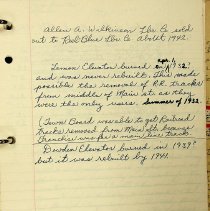 Allen A. Wilkinson Lbr. Co sold
out to Red Blue Lbr. Co about 1942.
Lemon Elevator burned in Apr. 1, 1932
and was never rebuilt. This made
possible the removal of R.R. tracks
from middle of Main st. as they
were the only users. Summer of 1932.
(Town Board was able to get Railroad
tracks removed from Main st. because
Franchise was for a main line track
Dowden Elevator burned in 1939?
but it was rebuilt by 1941.